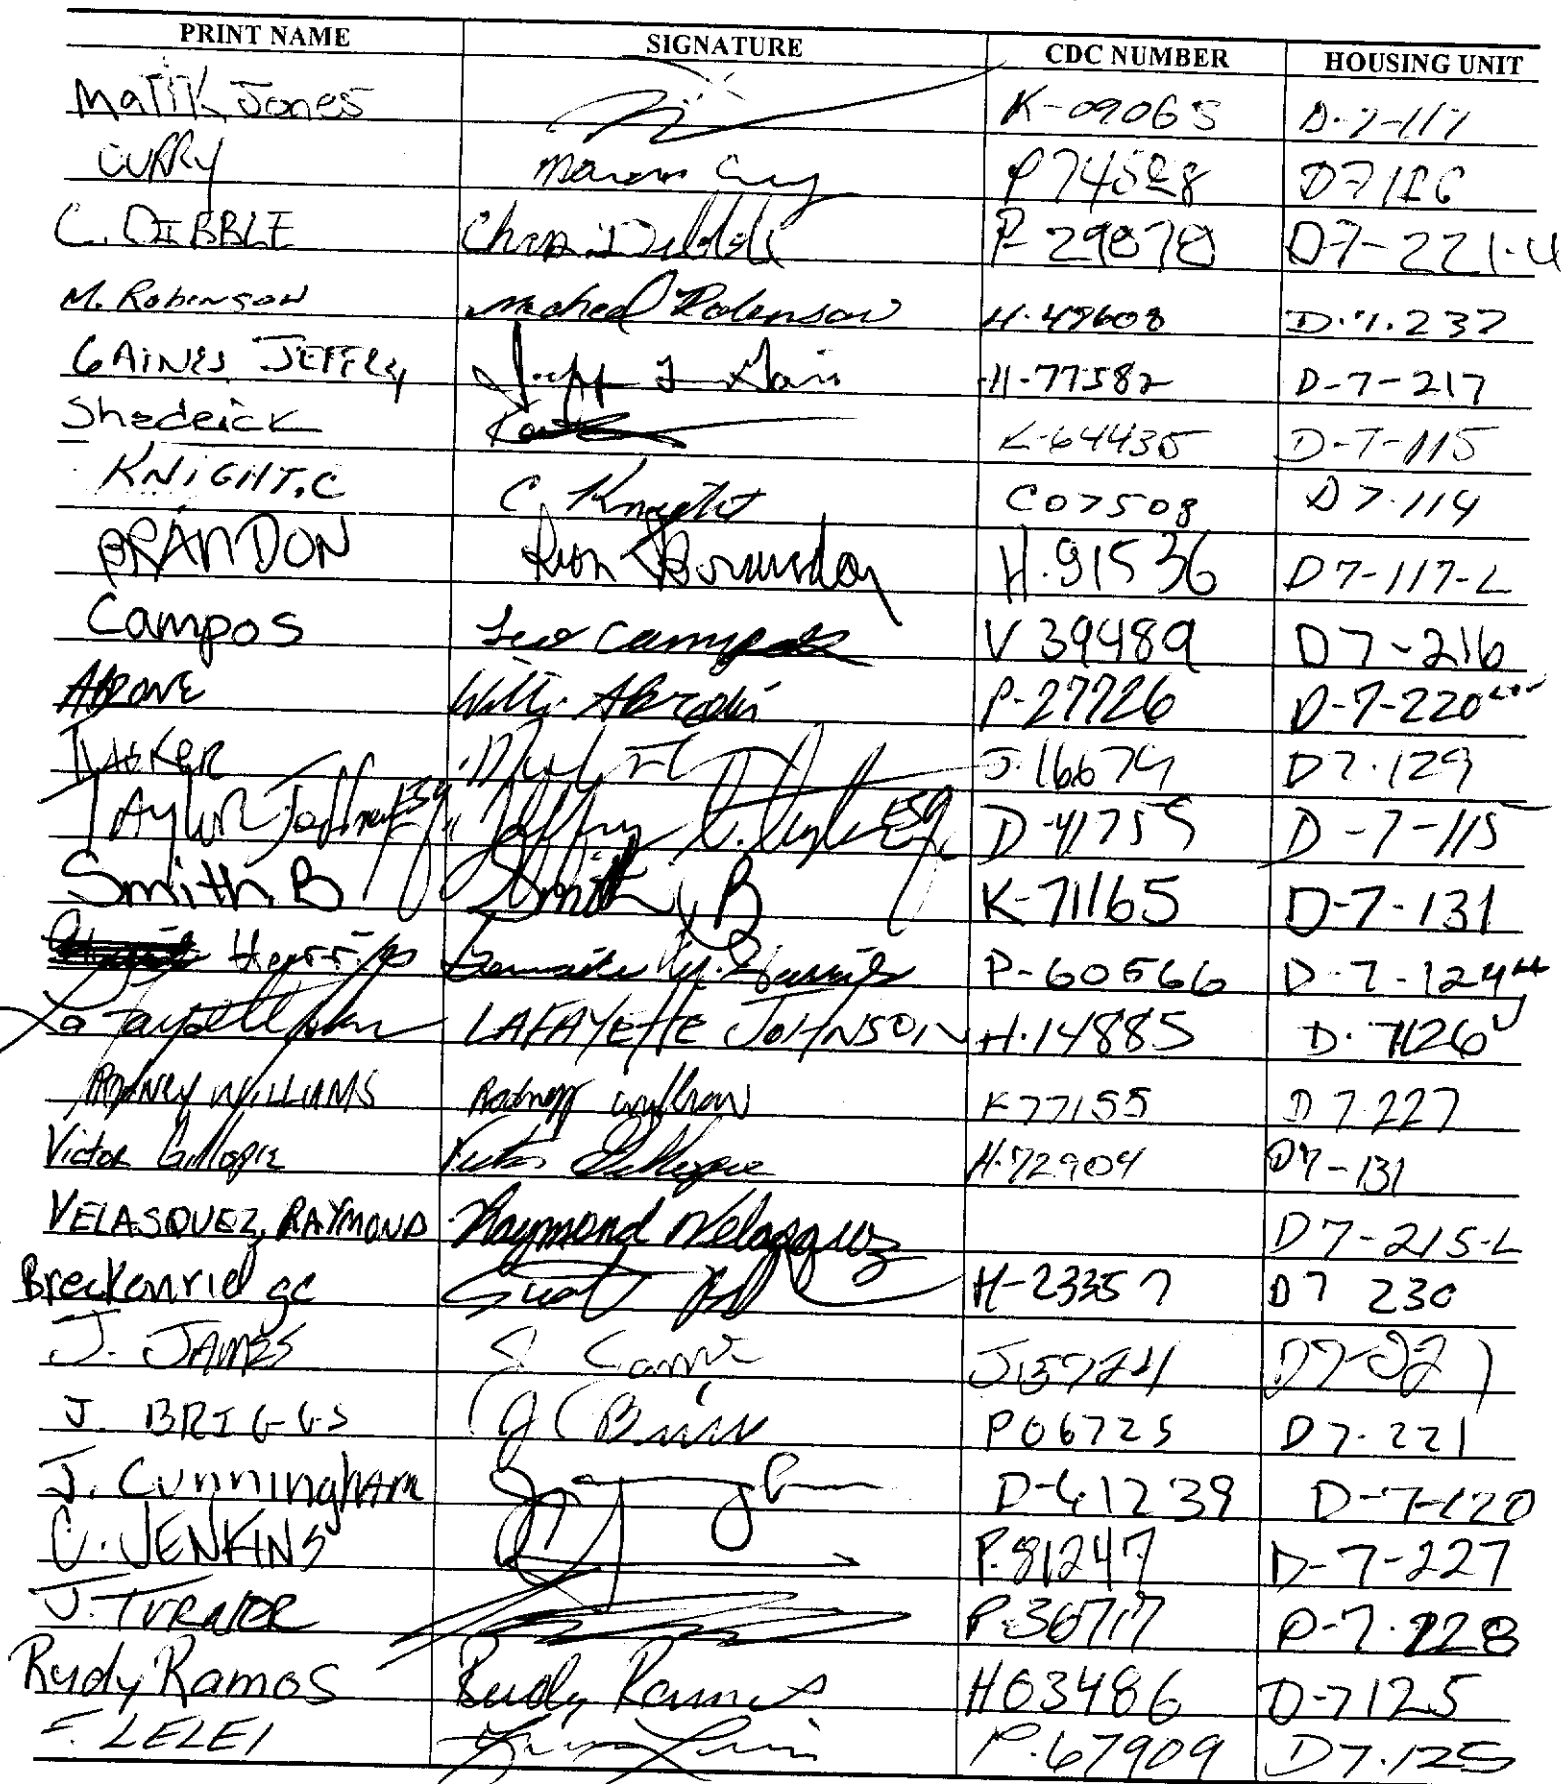 PRINT NAME SIGNATURE CDC NUMBER HOUSING UNIT
Malik Jones K-09065 D-7-117
CURRY P74528 D7116
C. DIBBLE Chris Dibble P-29078 D7-221-U
M. Robinson Micheal Robinson H-49608 D.7.237
GAINES JEFFERY H-77582 D-7-217
Shederick K-64435 D-7-115
KNIGHT, C C. Knight C07508 D7-114
BRANDON Ron Brandon H.91536 D7-117-L
Campos Leo Campos V39489 D7-216
P-27726 D-7-220
J.16679 D7.129
TAYLOR Jeffrey ESQ. Jeffrey ESQ D-41755 D-7-115
Smith, B Smith, B K-71165 D-7-131
P-60566 D-7-124
LAFAYETTE JOHNSON H.14885 D.7126
RODNEY WILLIAMS Rodney K77155 D7.227
Victor Gillopie Victor Gillespie H-72904 D7-131
VELASQUEZ, RAYMOND Raymond Velasquez D7-215-L
Breckenridge Scott H-23357 D7 230
J. JAMES J15724
J. BRIGGS P06725 D7.221
J. Cunningham D-61239 D-7-120
C. JENKINS P.81247 D-7-227
J. TURNER P-36717 D-7-228
Rudy Ramos Rudy Ramos H03486 D-7125
F. LELEI P.67909 D7.125